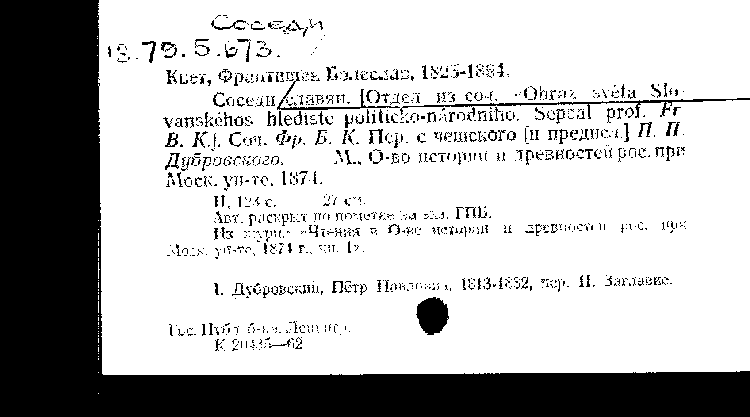 Соседи
18.79.5.673.
Квет, Франтишек Болеслав, 1825-1864.
Соседи славян. [Отдел. из соч. «Obraz světa Slo-
vanského s hlediště politicko-národního. Sepsal prof. Fr
B. K.]. Соч. Фр. Б. К. Пер. с чешского [и предисл.] П. П.
Дубровского. М., О-во истории и древностей рос. при
Моск. ун-те, 1874.
II, 123 с. 27 см.
Авт. раскрыт по пометке на экз. ГПБ.
Из журн. «Чтения в О-ве истории и древностей рос. при
Моск. ун-те, 1874 г., кн. 1».
I. Дубровский, Пётр Павлович, 1813-1882, пер. II. Заглавие.
Гос. Публ. б-ка. Ленингр.
К 20435—62